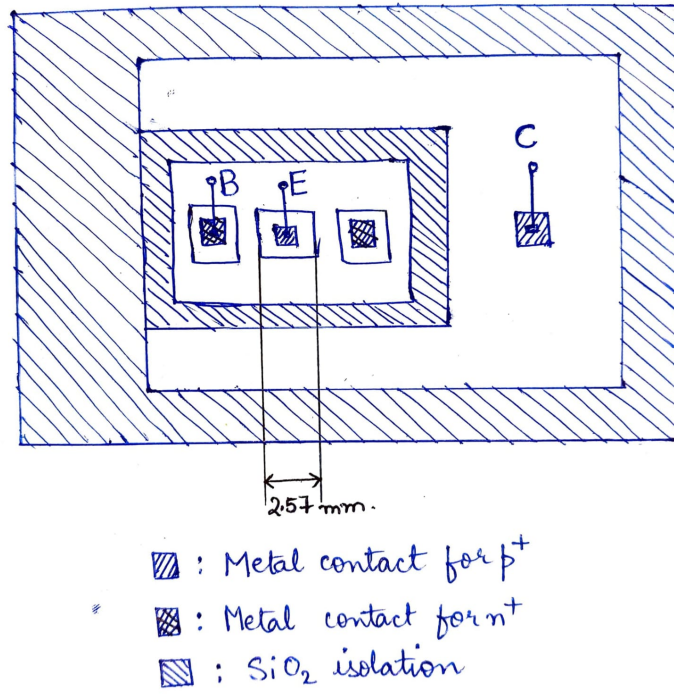 C
B E
2.57 mm.
: Metal contact for p⁺
: Metal contact for n⁺
: SiO₂ isolation